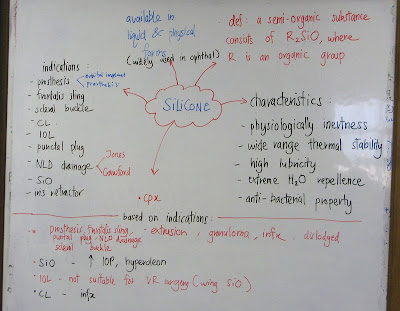 available in
liquid & physical
forms
(widely used in ophthal)
def: a semi-organic substance
consists of R2SiO, where
R is an organic group
SILICONE
indications:
- prosthesis
orbital implant
prosthesis
- frontalis sling
- scleral buckle
- CL
- IOL
- punctal plug
- NLD drainage
Jones
Crawford
- SiO
- iris retractor
characteristics:
- physiologically inertness
- wide range thermal stability
- high lubricity
- extreme H2O repellence
- anti-bacterial property
• cpx
based on indications:
• prosthesis, frontalis sling, - extrusion, granuloma, infx, dislodged
punctal plug, NLD drainage
scleral buckle
• SiO - ↑ IOP, hyperoleon
• IOL - not suitable for VR surgery (using SiO)
• CL - infx